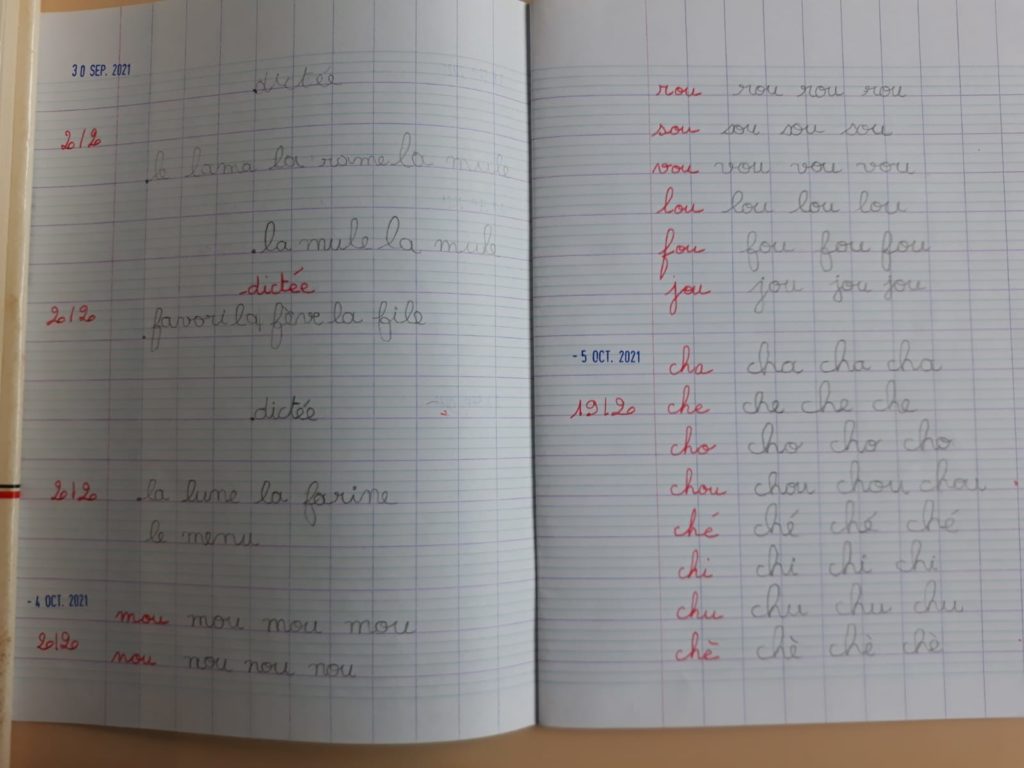 30 SEP. 2021
dictée
20/20
le lama la rame la mule
la mule la mule
dictée
20/20 favori la fève la file
dictée
20/20 la lune la farine
le menu
- 4 OCT. 2021
mou mou mou mou
20/20
nou nou nou nou
rou rou rou rou
sou sou sou sou
vou vou vou vou
lou lou lou lou
fou fou fou fou
jou jou jou jou
- 5 OCT. 2021 cha cha cha cha
19/20 che che che che
cho cho cho cho
chou chou chou chau
ché ché ché ché
chi chi chi chi
chu chu chu chu
chè chè chè chè